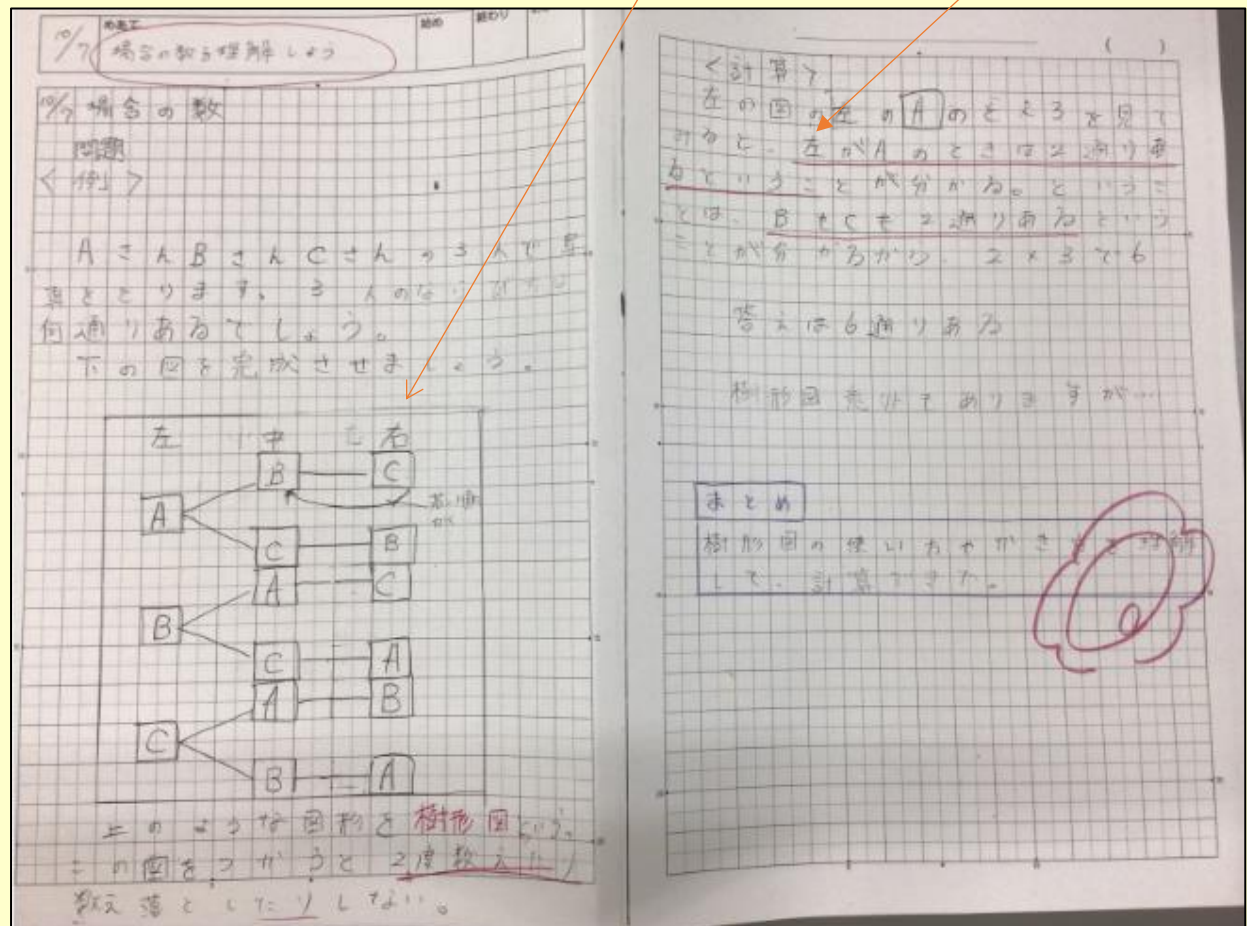 10/7
めあて
場合の数を理解しよう
始め
終わり
10/7 場合の数
問題
<例>
AさんBさんCさんの3人で写
真をとります。3人のならび方は
何通りあるでしょう。
下の図を完成させましょう。
左 中 右
A B C
C B
B A C
C A
C A B
B A
このような図形を樹形図という。
この図をつかうと2度数えたり
数え落としたりしない。
( )
<計算>
左の図の左のAのところを見て
みると、左がAのときは2通りあ
るということが分かる。というこ
とは、BもCも2通りあるという
ことが分かるから 2×3で6
答えは6通りある
樹形図 ありますが…
まとめ
樹形図の使い方やかき方を理解
して、計算できた。